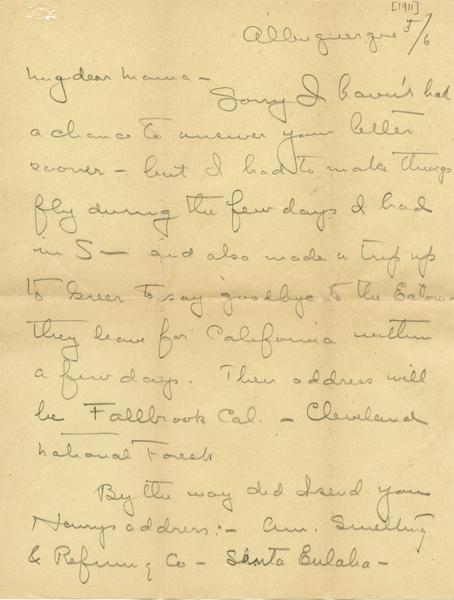 [1911]
Albuquerque 5/6
My dear Mama -
Sorry I haven't had
a chance to answer your letter
sooner - but I had to make things
fly during the few days I had
in S - and also made a trip up
to Greer to say goodbye to the Eatons
they leave for California within
a few days. Their address will
be Fallbrook Cal. - Cleveland
National Forest
By the way did I send you
Henrys address:- Am. Smelting
& Refining Co - Santa Eulalia -